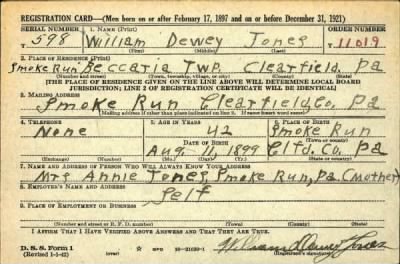 REGISTRATION CARD—(Men born on or after February 17, 1897 and on or before December 31, 1921)
SERIAL NUMBER 1. NAME (Print) ORDER NUMBER
T 598 William Dewey Jones 11019
(First) (Middle) (Last)
2. PLACE OF RESIDENCE (Print)
Smoke Run, Beccaria Twp. Clearfield, Pa
(Number and street) (Town, township, village, or city) (County) (State)
[THE PLACE OF RESIDENCE GIVEN ON THE LINE ABOVE WILL DETERMINE LOCAL BOARD
JURISDICTION; LINE 2 OF REGISTRATION CERTIFICATE WILL BE IDENTICAL]
3. MAILING ADDRESS
Smoke Run Clearfield, Co. Pa
[Mailing address if other than place indicated on line 2. If same insert word same]
4. TELEPHONE 5. AGE IN YEARS 6. PLACE OF BIRTH
None 42 Smoke Run
DATE OF BIRTH (Town or county)
Aug 11, 1899 Clfd. Co. Pa
(Exchange) (Number) (Mo.) (Day) (Yr.) (State or country)
7. NAME AND ADDRESS OF PERSON WHO WILL ALWAYS KNOW YOUR ADDRESS
Mrs Annie Jones, Smoke Run, Pa. (Mother)
8. EMPLOYER'S NAME AND ADDRESS
Self
9. PLACE OF EMPLOYMENT OR BUSINESS
(Number and street or R. F. D. number) (Town) (County) (State)
I AFFIRM THAT I HAVE VERIFIED ABOVE ANSWERS AND THAT THEY ARE TRUE.
D. S. S. Form 1 GPO 16-21630-1 William Dewey Jones
(Revised 1-5-42) (over) (Registrant's signature)